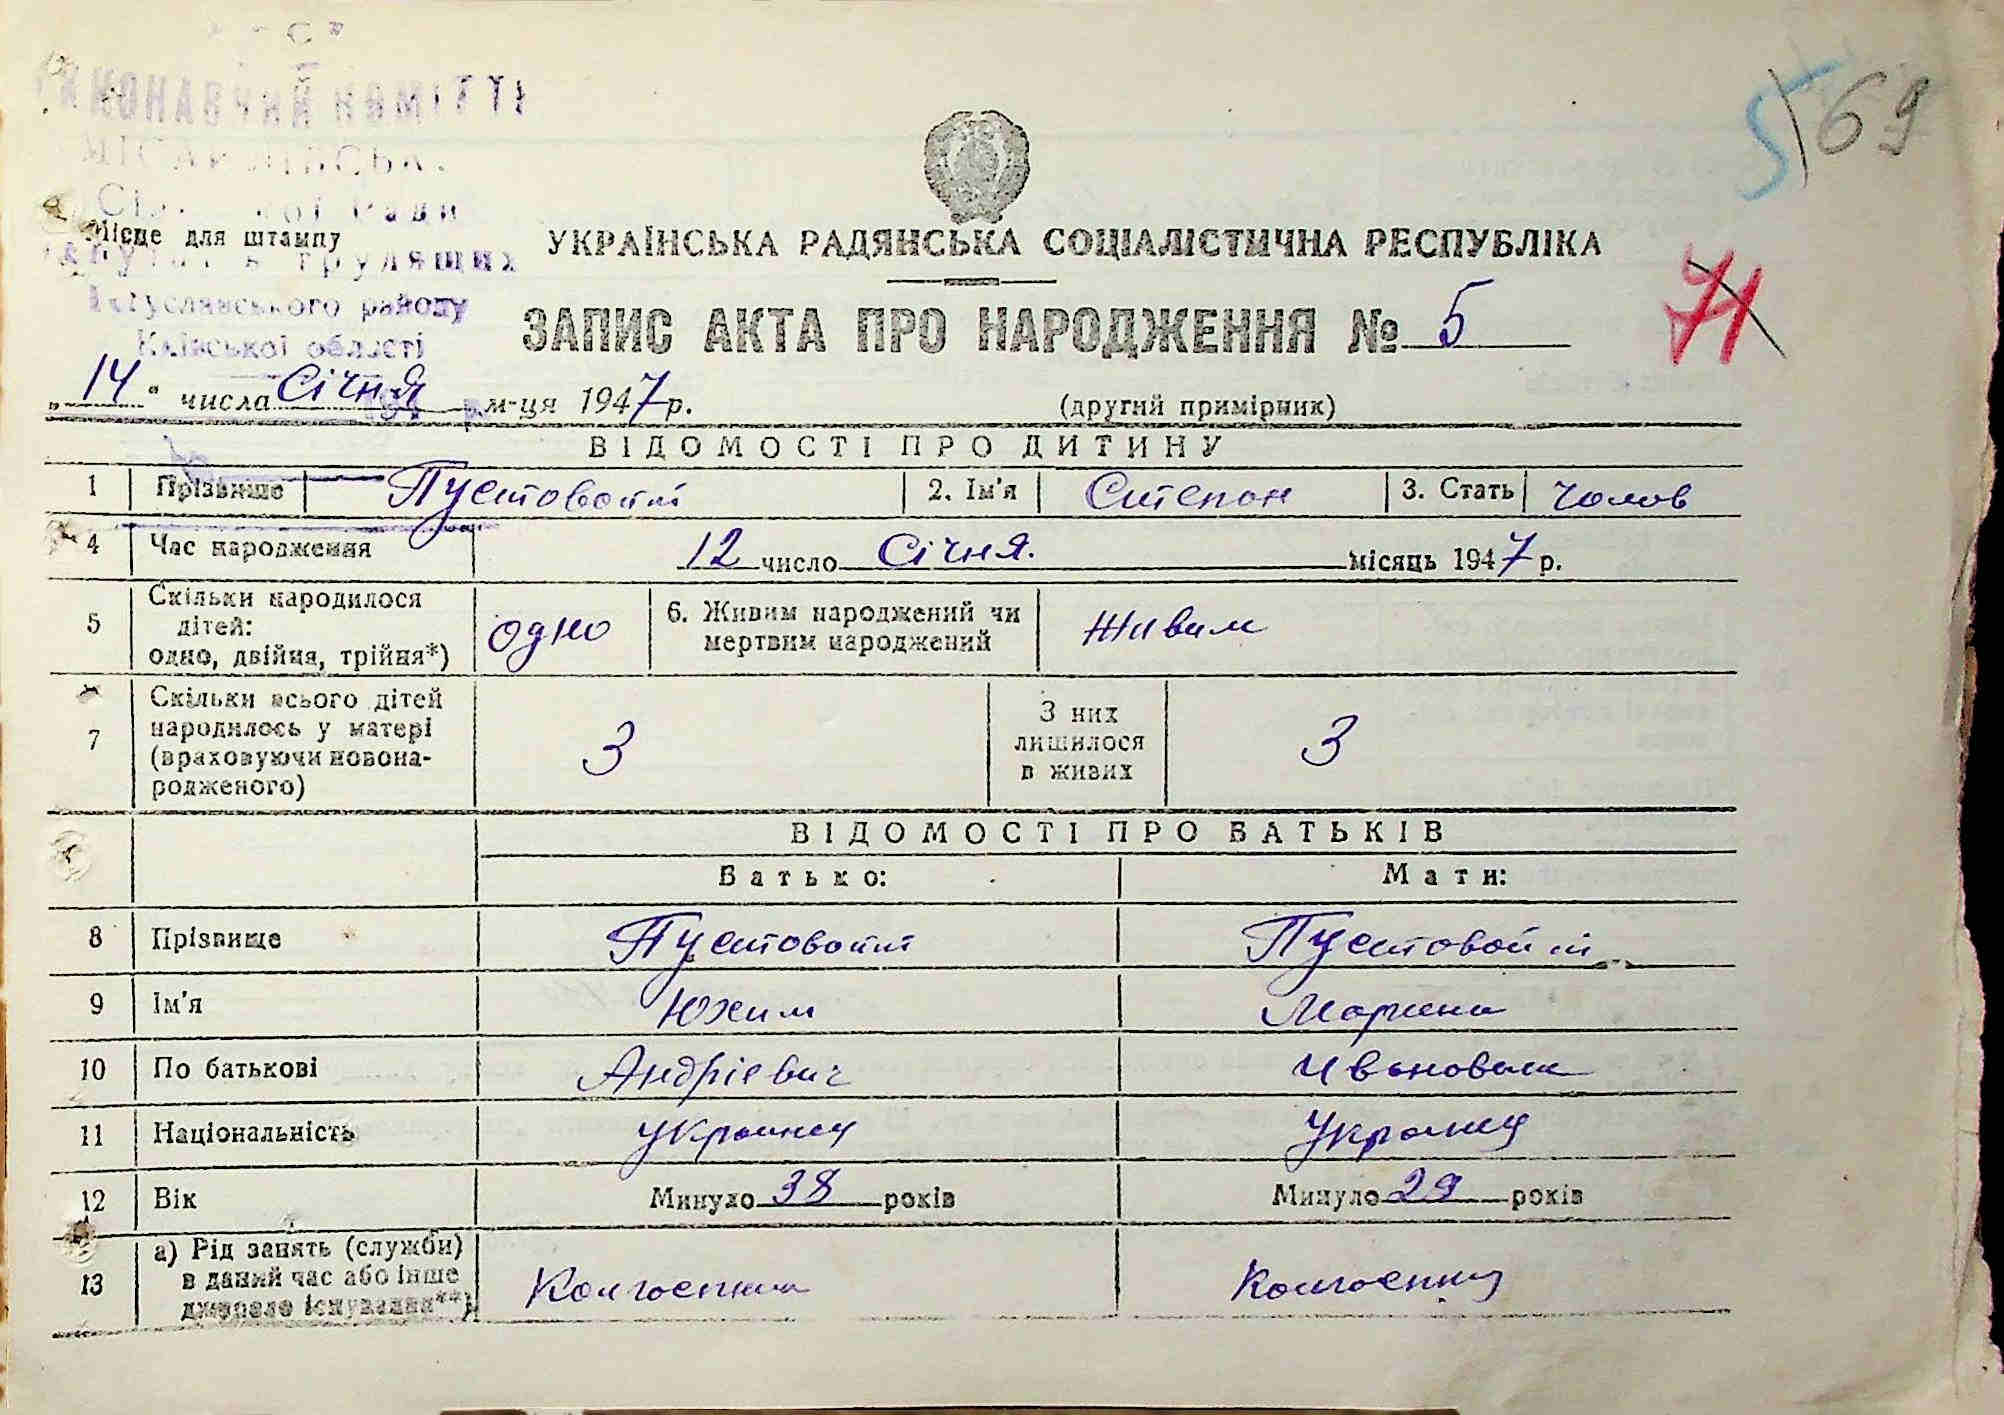 ВИКОНАВЧИЙ КОМІТЕТ
Місце для штампу
трудящих
Богуславського району
Київської області
5 69
71
УКРАЇНСЬКА РАДЯНСЬКА СОЦІАЛІСТИЧНА РЕСПУБЛІКА
ЗАПИС АКТА ПРО НАРОДЖЕННЯ № 5
„14“ числа Січня м-ця 1947 р. (другий примірник)
ВІДОМОСТІ ПРО ДИТИНУ
1 Прізвище Пустовойт 2. Ім'я Степан 3. Стать чолов
4 Час народження 12 число Січня. місяць 1947 р.
5 Скільки народилося дітей: одно, двійня, трійня*) одно 6. Живим народжений чи мертвим народжений живим
7 Скільки всього дітей народилось у матері (враховуючи новонародженого) 3 З них лишилося в живих 3
ВІДОМОСТІ ПРО БАТЬКІВ
Батько: Мати:
8 Прізвище Пустовойт Пустовойт
9 Ім'я Юхим Марина
10 По батькові Андрієвич Ивановна
11 Національність Украинец Украинец
12 Вік Минуло 38 років Минуло 29 років
13 а) Рід занять (служби) в даний час або інше джерело існування**) Колгоспник Колгоспниц